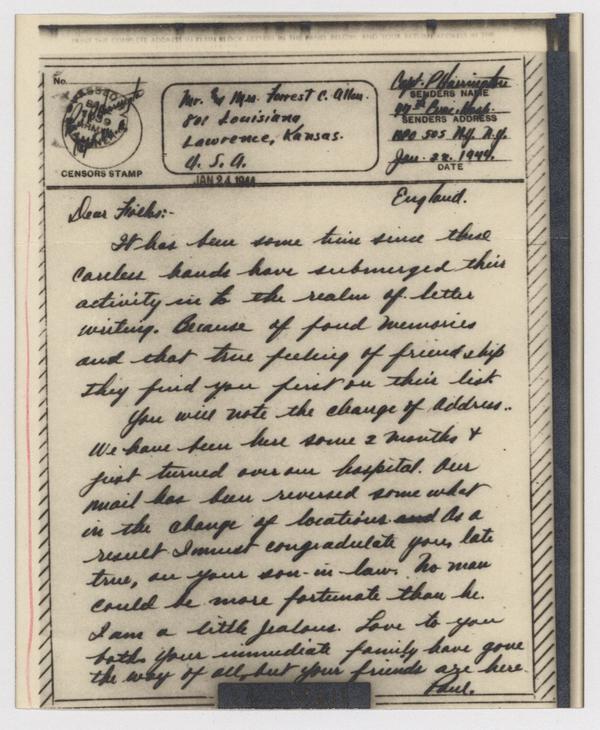 PRINT THE COMPLETE ADDRESS IN PLAIN BLOCK LETTERS IN THE PANEL BELOW, AND YOUR RETURN ADDRESS IN THE
No.
CENSORS STAMP
Mr. & Mrs. Forrest C. Allen.
801 Louisiana
Lawrence, Kansas.
U. S. A.
JAN 24 1944
Capt. P. Harrington
SENDERS NAME
77th Evac. Hosp.
SENDERS ADDRESS
APO 505 N.Y. N.Y.
Jan. 22, 1944.
DATE
England.
Dear Folks:-
It has been some time since these
careless hands have submerged their
activity in to the realm of letter
writing. Because of fond memories
and that true feeling of friendship
they find you first on their list
You will note the change of address..
We have been here some 2 months &
just turned over our hospital. Our
mail has been reversed some what
in the change of locations and As a
result I must congradulate you, late
true, on your son-in-law. No man
could be more fortunate than he.
I am a little jealous. Love to you
both. Your immediate family have gone
the way of all, but your friends are here.
Paul.